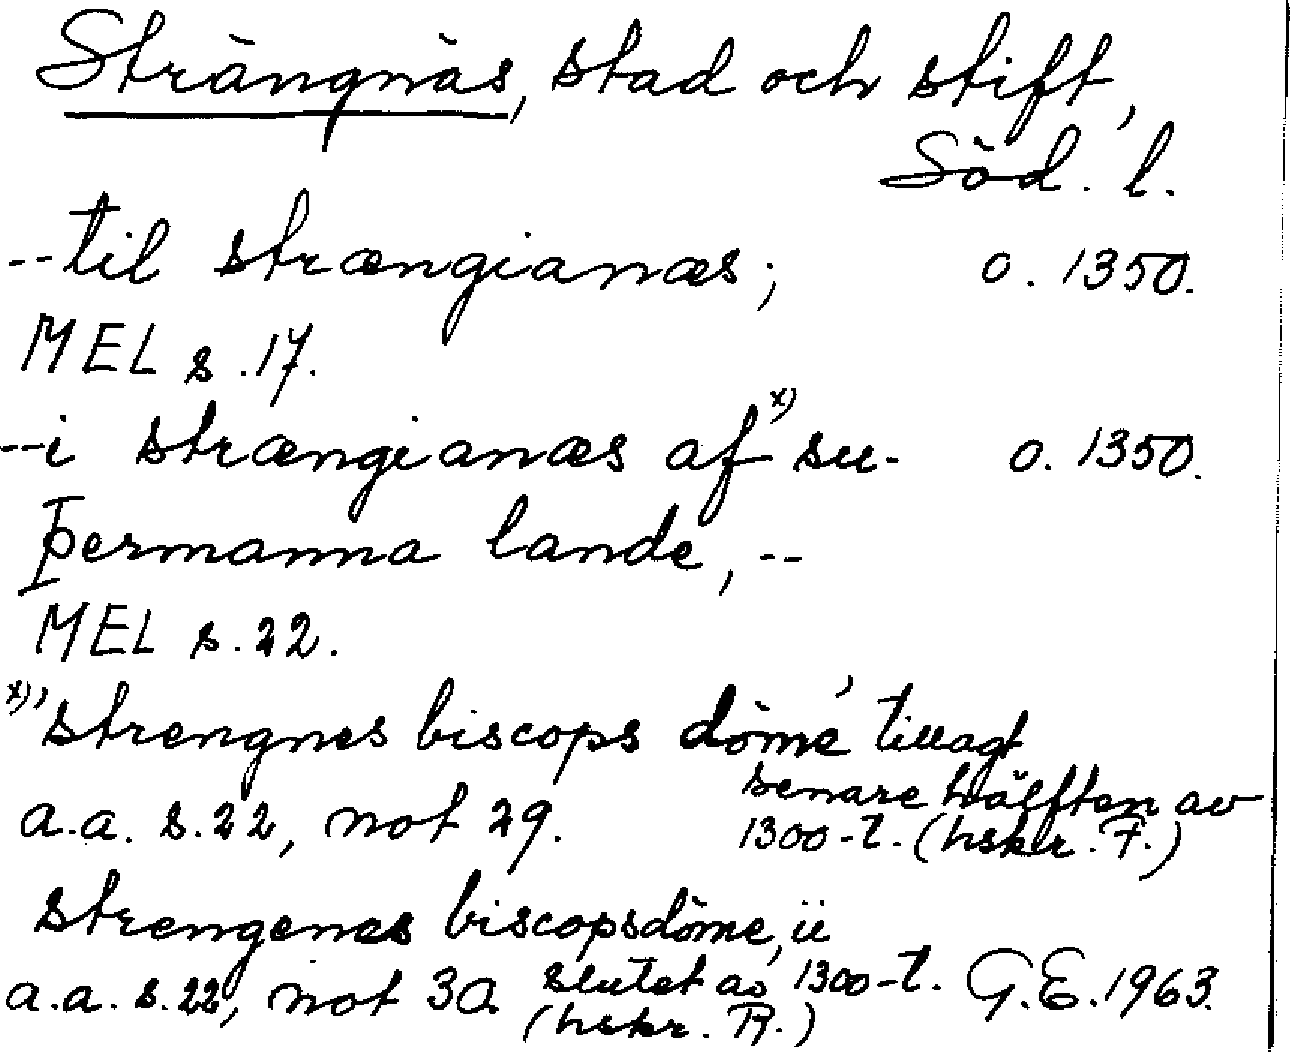 Strängnäs, stad och stift,
Söd. l.
--til strængianæs; o. 1350.
MEL s. 17.
--i strængianæs af x) su- o. 1350.
þermanna lande, --
MEL s. 22.
x) 'strengnes biscops döme' tillagt
senare hälften av
a.a. s. 22, not 29. 1300-t. (hskr. F.)
strengenes biscopsdöme, ii
a.a. s. 22, not 30. slutet av 1300-t. G.E. 1963.
(hskr.